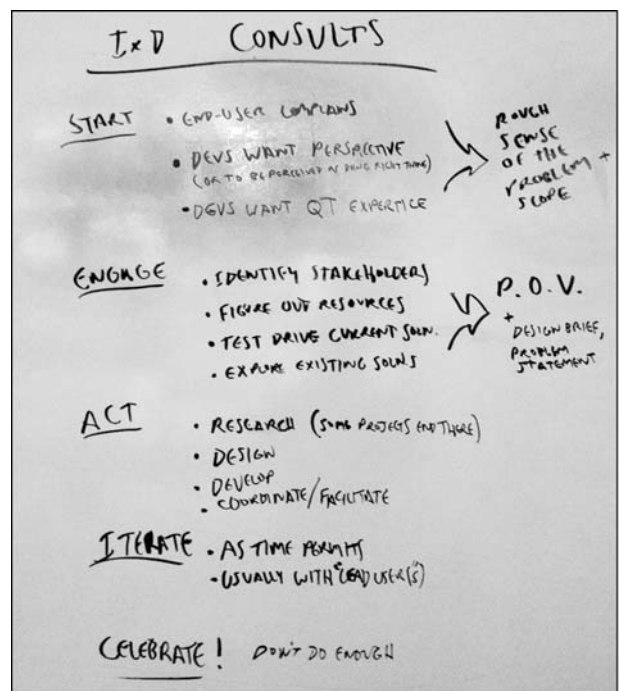 IxD CONSULTS
START • END-USER COMPLAINS
• DEVS WANT PERSPECTIVE
(OR TO BE PERCEIVED AS DOING RIGHT THING)
• DEVS WANT QT EXPERTICE
ROUGH
SENSE
OF THE
PROBLEM +
SCOPE
ENGAGE • IDENTIFY STAKEHOLDERS
• FIGURE OUT RESOURCES
• TEST DRIVE CURRENT SOLN.
• EXPLORE EXISTING SOLNS
P.O.V.
+
DESIGN BRIEF,
PROBLEM
STATEMENT
ACT • RESEARCH (SOME PROJECTS END THERE)
• DESIGN
• DEVELOP
• COORDINATE/FACILITATE
ITERATE • AS TIME PERMITS
• USUALLY WITH "LEAD USER(S")
CELEBRATE! DON'T DO ENOUGH